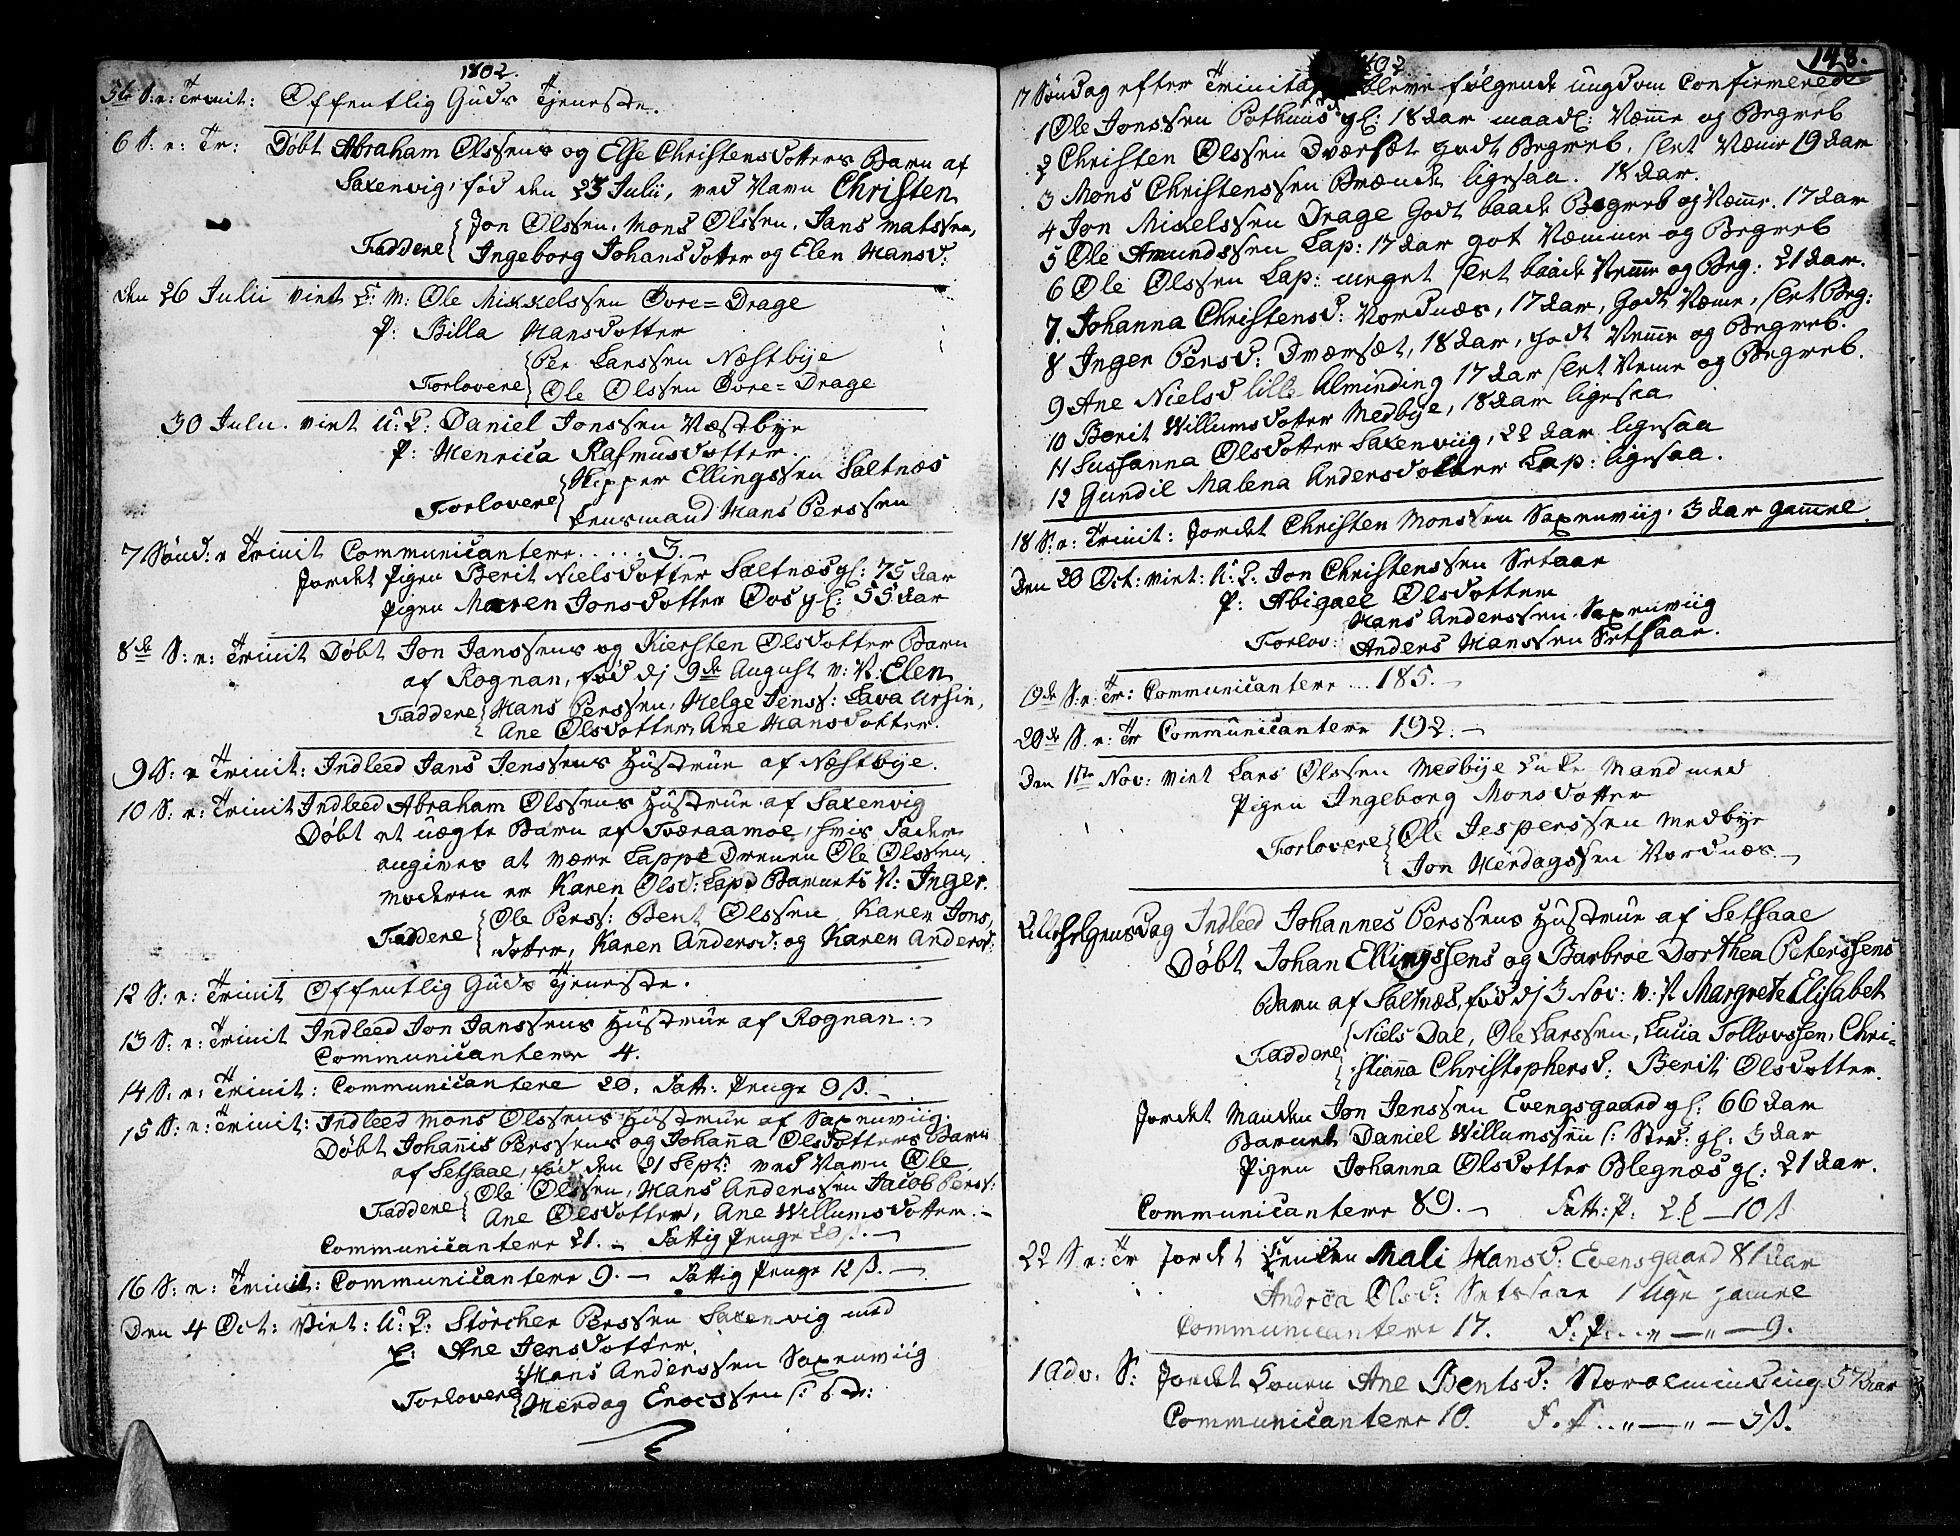 1802.
5te S: e: Trinit: Offentlig Guds Tjeneste.
6 S: e: Tr: Døbt Abraham Olssens og Else Christensdotters Barn af
Saxenvig, fød den 23 Julii, ved Navn Christen
Faddere Jon Olssen, Mons Olssen, Jans Matssen,
Ingeborg Johansdotter og Elen Hansd:
den 26 Julii viet E: M: Ole Mikkelssen Øvre=Drage
P: Billa Hansdotter
Forlovere Per Larssen Næstbye
Ole Olssen Øvre=Drage
30 Julii. viet U: K: Daniel Jonssen Næstbye
P: Henrica Rasmusdotter.
Forlovere Skipper Ellingssen Saltnæs
Lensmand Hans Perssen
7 Sønd: e Trinit Communicantere......3.
Jordet Pigen Berit Nielsdotter Saltnæs gl: 75 Aar
Pigen Maren Jonsdotter Øos gl: 55 Aar
8de S: e: Trinit Døbt Jon Janssens og Kiersten Olsdotter Barn
af Rognan, fød dj 9de August v: N: Elen
Faddere Hans Perssen, Helge Jenss: Lava Arhin,
Ane Olsdotter, Ane Hansdotter.
9 S: e Trinit: Indleed Jans Jenssens Hustrue af Næstbye.
10 S: e: Trinit Indleed Abraham Olssens Hustrue af Saxenvig
Døbt et uægte Barn af Tveraamoe, hvis Fader
angives at være Lappe Drengen Ole Olssen,
Moderen er Karen Olsd: Lap. Barnets N: Inger.
Faddere Ole Perss: Bent Olssen, Karen Jons,
dotter, Karen Andersd: og Karen Andersd:
12 S: e: Trinit Offentlig Guds Tjeneste.
13 S: e: Trinit Indleed Jon Janssens Hustrue af Rognan:
Communicantere 4.
14 S: e: Trinit: Communicantere 20. Fatt: Penge 9 ß.
15 S: e: Trinit: Indleed Mons Olssens Hustrue af Saxenviig.
Døbt Johannis Perssens og Johanna Olsdotters Barn
af Setsaae, fød den 21 Sept: ved Navn Ole
Faddere Ole Olssen, Hans Anderssen Jacob Perss:
Ane Olsdotter, Ane Willumsdotter.
Communicantere 21. Fattig Penge 20 ß.
16 S: e: Trinit: Communicantere 9. Fattig Penge 12 ß.
Den 4 Oct: Viet: U: K: Störcher Perssen Saxenvig med
P: Ane Jensdotter.
Forlovere Hans Anderssen Saxenviig
Herdag Enocssen s: sd:
1802. 148.
17 Søndag efter Trinita bleve følgende ungdom Confirmerede
1 Ole Jonssen Pothuus gl: 18 Aar maadl: Næmme og Begreb
2 Christen Olssen Dværset godt Begreb, slet Næme 19 Aar
3 Mons Christenssen Brænde ligesaa. 18 Aar.
4 Jon Mikelssen Drage Godt baade Begreb og Næmme. 17 Aar
5 Ole Amundssen Lap: 17 Aar got Næmme og Begreb
6 Ole Olssen Lap: meget slet baade Nemme og Beg: 21 Aar.
7. Johanna Christensd: Nordnæs, 17 Aar, Godt Næme, slet Beg:
8 Inger Persd: Dværset, 18 Aar, godt Nemme og Begreb.
9 Ane Nielsd lille Alminding 17 Aar slet Neme og Begreb.
10 Berit Willumsdotter Medbye, 18 Aar ligesaa
11 Sussanna Olsdotter Saxenviig, 22 Aar ligesaa
12 Gundil Malena Andersdotter Lap: ligesaa.
18 S: e: Trinit: Jordet Christen Monssen Saxenviig. 3 Aar gamel.
Den 20 Oct: viet: U: K: Jon Christenssen Setsaae
P: Abigael Olsdotter
Forlov: Hans Anderssen Saxenviig
Anders Hanssen Setsaae.
19de S: e: Tr: Communicantere .... 185.
20de S. e: Tr Communicantere 192.
Den 11te Nov: viet Lars Olssen Medbye Enke Mand med
Pigen Ingeborg Monsdotter
Forlovere Ole Jesperssen Medbye
Jon Herdagssen Nordnæs.
Allehelgens Dag Indleed Johannes Perssens Hustrue af Setsaae
Døbt Johan Ellingssens og Barbroe Dorthea Peterssens
Barn af Saltnæs, fød dj 3 Nov: v: N Margrete Elisabet
Faddere Niels Dal, Ole Larssen, Lucia Tollovssen, Chri=
stianna Christophersd: Berit Olsdotter.
Jordet Manden Jon Jenssen Evensgaard gl: 66 Aar
Barnet Daniel Willumssen s: Sted: gl: 3 Aar
Pigen Johanna Olsdotter Blegnæs gl: 21 Aar.
Communicantere 89. Fatt: P: 2 10 ß
22 S e: Tr Jordet Enken Mali Hansd: Evensgaard 81 Aar
Andrea Olsd: Setssaae 1 Uge gamel
Communicantere 17. F. P... „ — „ — 9.
1 Adv. S: Jordet Konen Ane Bentsd: Storalminding 57 Aar
Communicantere 10. F. P... „ — „ — 3 ß.